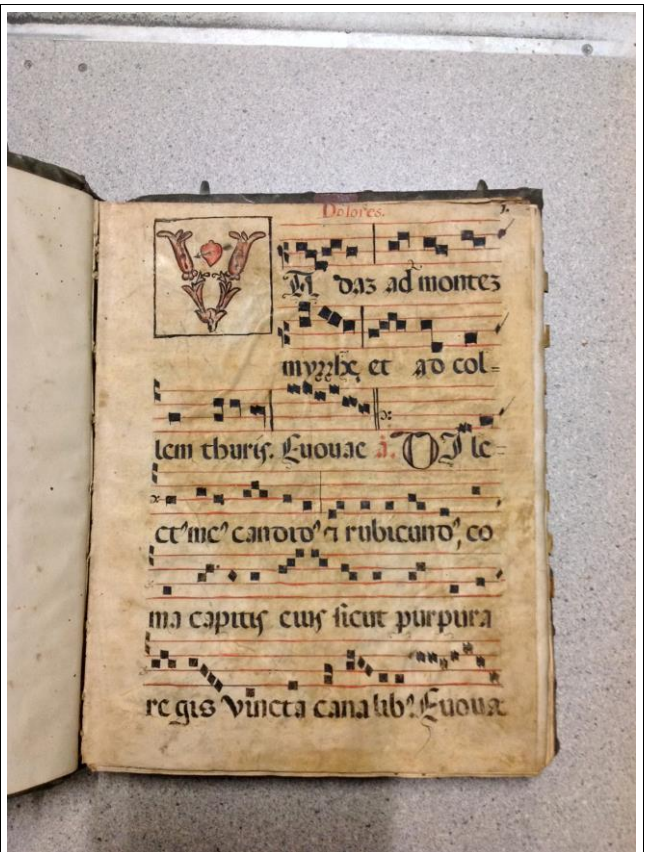 Dolores. 1.
V A daz ad montez
myrrhę et ad col=
lem thuris. Euouae á. DI le=
ct⁹ me⁹ candid⁹ et rubicund⁹, co
ma capitis eius sicut purpura
regis vincta canalib⁹. Euouae